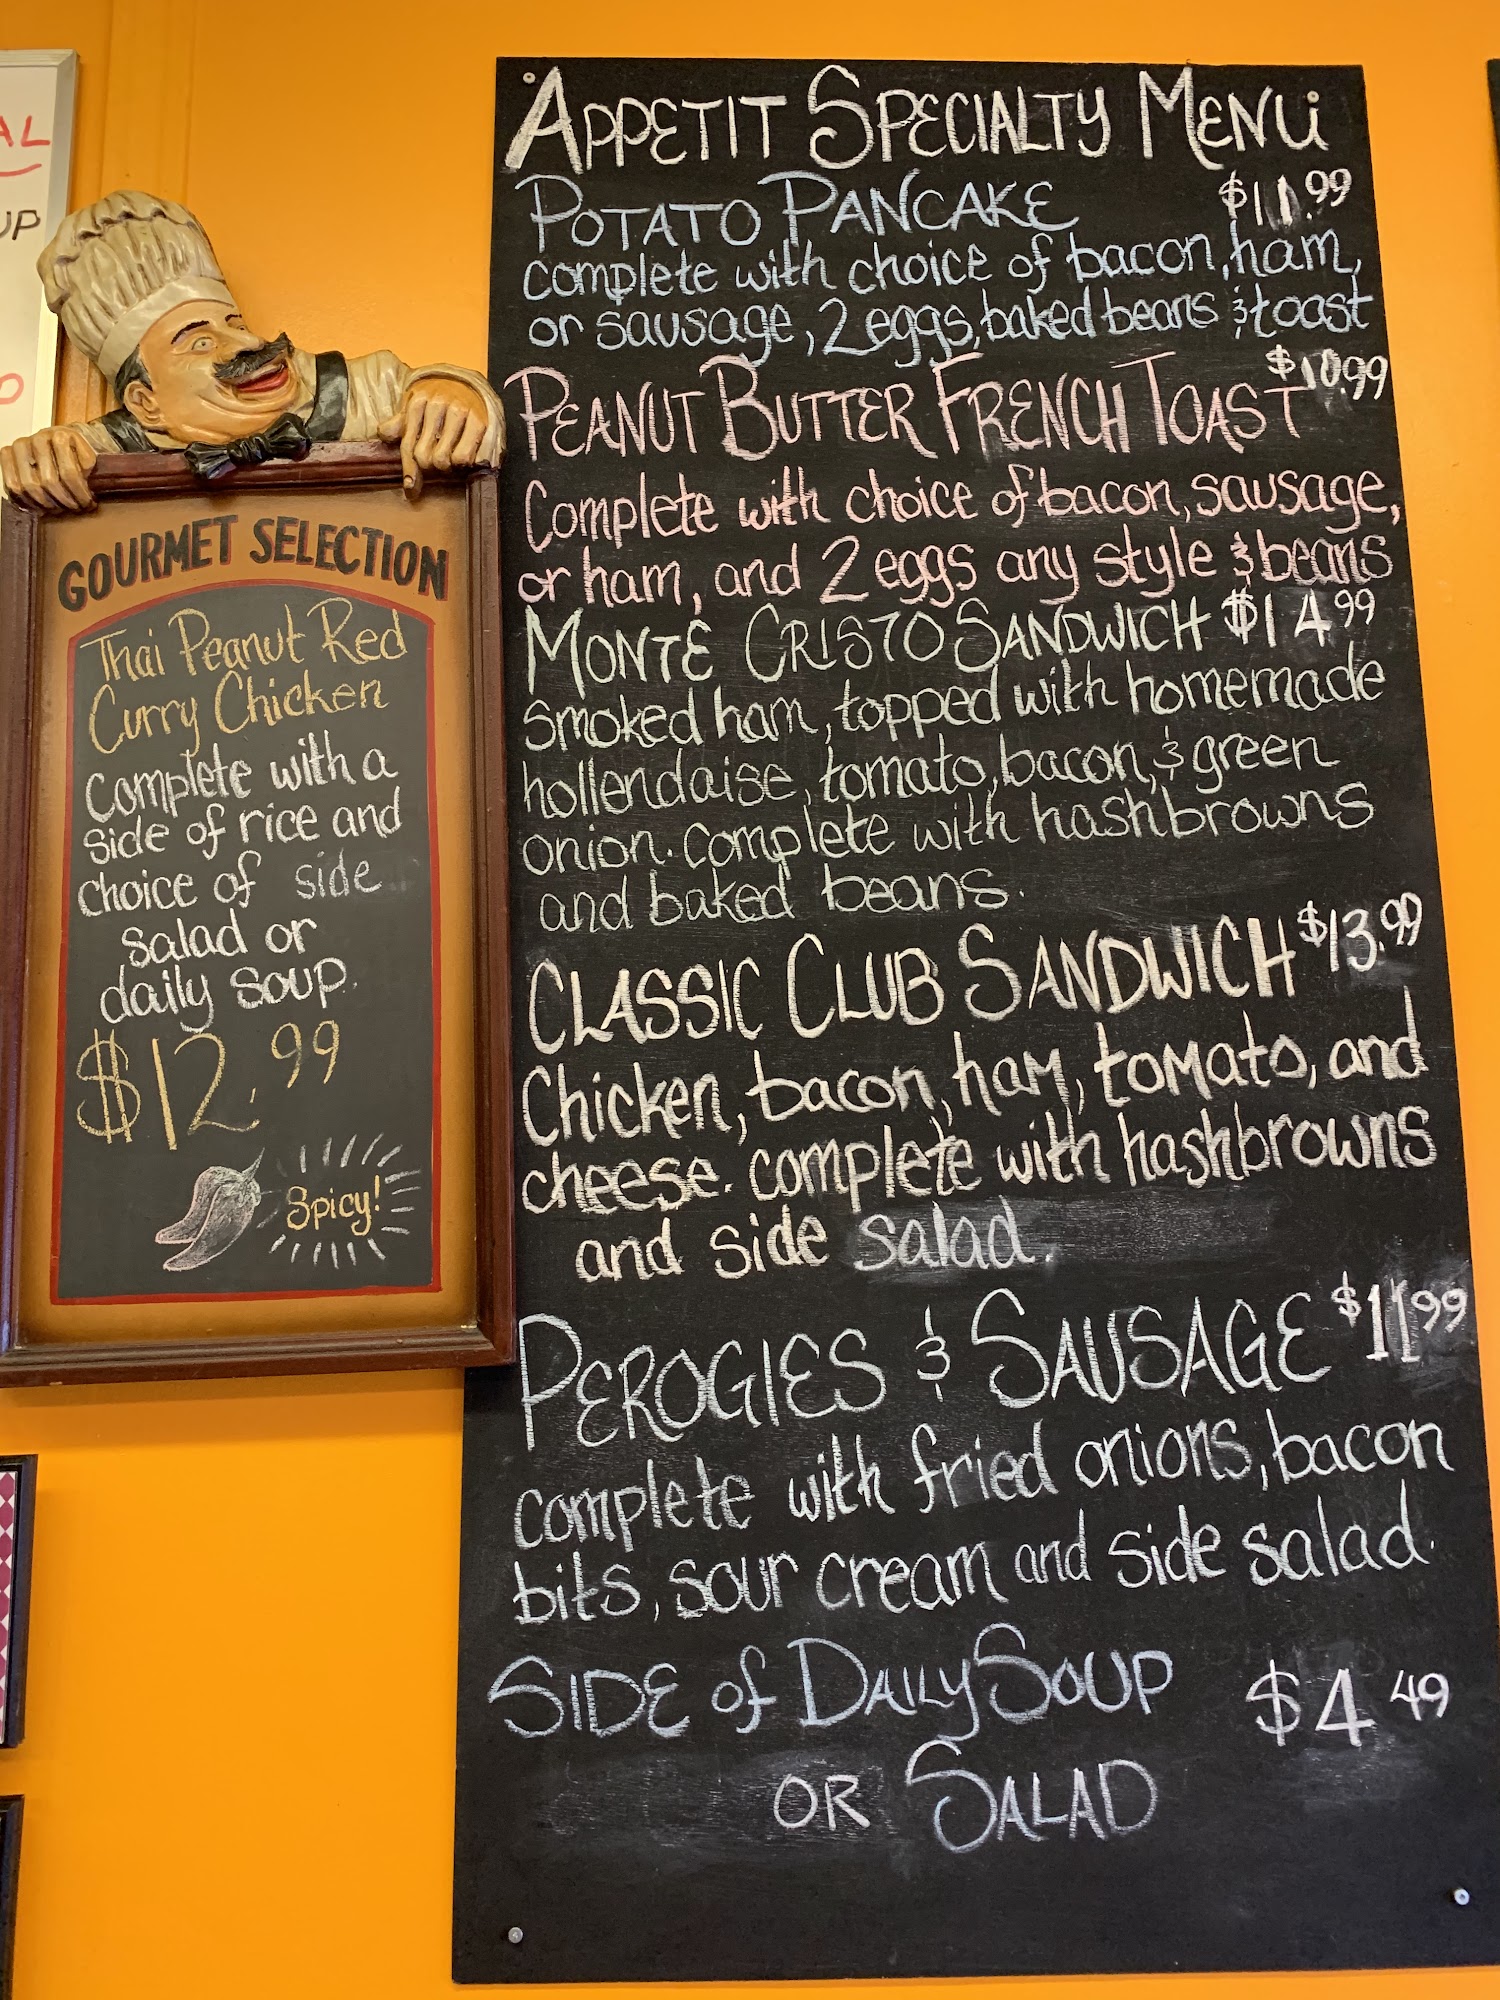 AL
UP
O
GOURMET SELECTION
Thai Peanut Red
Curry Chicken
Complete with a
side of rice and
choice of side
salad or
daily soup.
$12.99
Spicy!
APPETIT SPECIALTY MENU
POTATO PANCAKE $11.99
complete with choice of bacon, ham,
or sausage, 2 eggs, baked beans & toast
PEANUT BUTTER FRENCH TOAST $10.99
Complete with choice of bacon, sausage,
or ham, and 2 eggs any style & beans
MONTE CRISTO SANDWICH $14.99
smoked ham, topped with homemade
hollendaise, tomato, bacon, & green
onion. complete with hashbrowns
and baked beans.
CLASSIC CLUB SANDWICH $13.99
Chicken, bacon, ham, tomato, and
cheese. complete with hashbrowns
and side salad.
PEROGIES & SAUSAGE $11.99
complete with fried onions, bacon
bits, sour cream and side salad.
SIDE of DAILY SOUP $4.49
OR SALAD